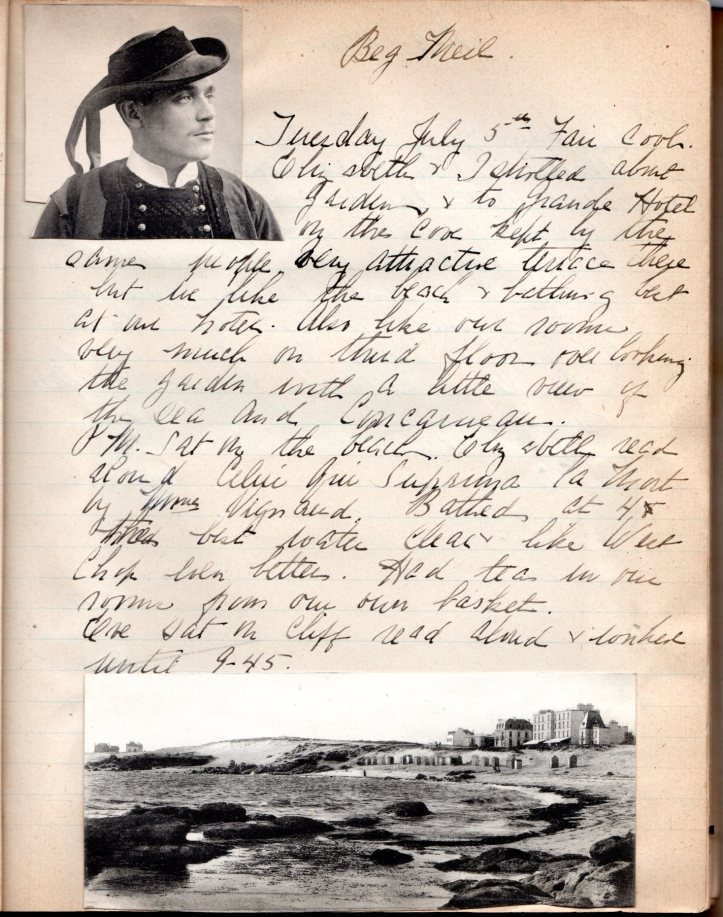 Beg Meil.
Tuesday July 5th Fair Cool.
Elizabeth & I strolled about
garden & to Grande Hotel
on the Cove kept by the
same people very attractive terrace there
but we like the beach & bathing best
at our hotel. Also like our rooms
very much on third floor overlooking
the garden with a little view of
the sea and Concarneau.
P.M. Sat on the beach. Elizabeth read
aloud Celui Qui Supprima la Mort
by Vignaud. Bathed at 4
best water clear & like West
Chop even better. Had tea in our
rooms from our own basket.
Eve sat on cliff read aloud & worked
until 9-45.